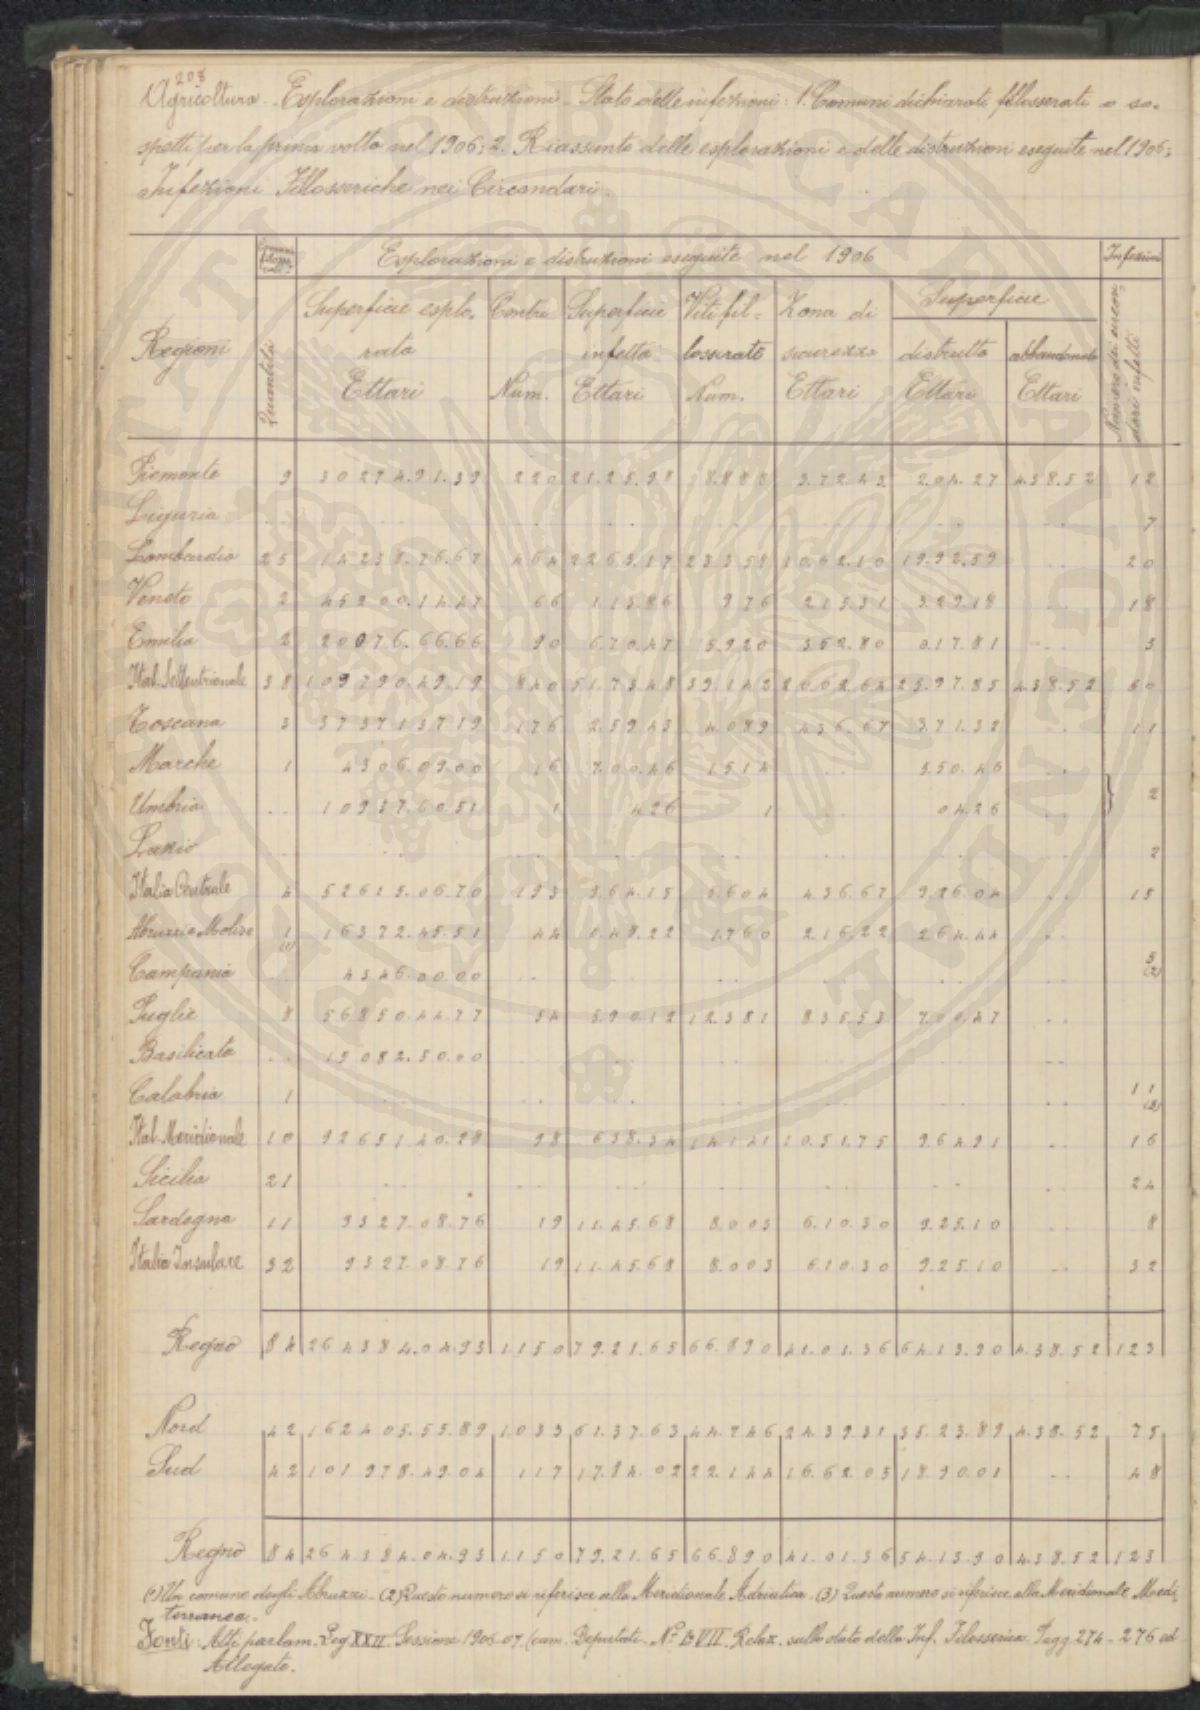 203
Agricoltura - Esplorazioni e distruzioni - Stato delle infezioni: 1. Comuni dichiarati fillosserati o so-
spetti per la prima volta nel 1906; 2. Riassunto delle esplorazioni e delle distruzioni eseguite nel 1906;
Infezioni Fillosseriche nei Circondari.
Esplorazioni e distruzioni eseguite nel 1906 Infezioni
Regioni Quantità Superficie esplo- Centri Superficie Viti fil- Zona di Superficie Numero dei circon-
rata infetta losserate sicurezza distrutta abbandonata dari infetti
Ettari Num. Ettari Num. Ettari Ettari Ettari
Piemonte 9 30274.91.39 220 21.25.98 8.888 9.72.43 2.04.27 4.38.52 12
Liguria .. .. .. .. .. .. .. .. 7
Lombardia 25 14238.76.67 464 2269.17 23358 10.62.10 19.92.59 .. 20
Veneto 2 45200.14.47 66 1.13.86 976 2.15.31 3.29.18 .. 18
Emilia 2 20076.66.66 90 6.70.47 5.920 3.52.80 0.17.81 .. 3
Ital. Settentrionale 38 109790.49.19 840 51.73.48 39.142 2602.64 25.97.85 4.38.52 60
Toscana 3 37371.37.19 176 2.59.43 4.089 4.36.67 3.71.32 .. 11
Marche 1 4306.09.00 16 7.00.46 1514 .. 5.50.46 ..
Umbria .. 10937.60.51 1 4.26 1 .. 0.4.26 .. 2
Lazio .. .. .. .. .. .. .. .. 2
Italia Centrale 4 52615.06.70 193 9.64.15 5.604 4.36.67 9.26.04 .. 15
Abruzzi e Molise 1 (1) 16372.45.51 44 0.48.22 1.760 2.16.22 2.64.44 ..
Campania .. 4346.00.00 .. .. .. .. .. .. 5 (2)
Puglie 8 56850.44.77 54 5.90.12 12.381 8.35.53 7.00.47 ..
Basilicata .. 15082.50.00 .. .. .. .. .. ..
Calabria 1 .. .. .. .. .. .. .. 11 (3)
Ital. Meridionale 10 92651.40.28 98 6.38.34 14.141 10.51.75 9.64.91 .. 16
Sicilia 21 .. .. .. .. .. .. .. 24
Sardegna 11 9327.08.76 19 11.45.68 8.003 6.10.30 9.25.10 .. 8
Italia Insulare 32 9327.08.76 19 11.45.68 8.003 6.10.30 9.25.10 .. 32
Regno 84 264384.04.93 1150 79.21.65 66.890 41.01.36 64.13.90 4.38.52 123
Nord 42 162405.55.89 1033 61.37.63 44.746 24.39.31 35.23.89 4.38.52 75
Sud 42 101978.49.04 117 17.84.02 22.144 16.62.05 18.90.01 .. 48
Regno 84 264384.04.93 1150 79.21.65 66.890 41.01.36 54.13.90 4.38.52 123
(1) Un comune degli Abruzzi - (2) Questo numero si riferisce alla Meridionale Adriatica - (3) Questo numero si riferisce alla Meridionale Medi-
terranea.
Fonti: Atti parlam. Leg XXII Sessione 1904-07 (cam. Deputati. N.º Relaz. sullo stato della Inf. Filosserica. Pagg. 274-276 ed
Allegato.